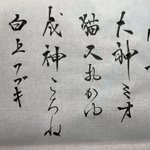 大神ミオ
猫又おかゆ
戌神ころね
白上フブキ